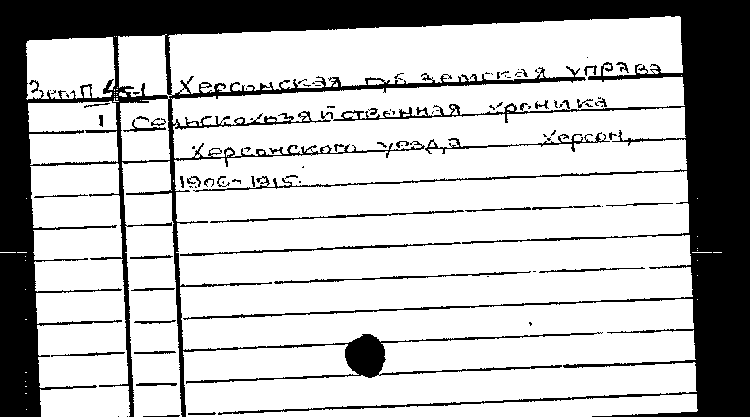 ЗемП 45-1 Херсонская губ земская управа
1 Сельскохозяйственная хроника
Херсонского уезда Херсон,
1906-1915.